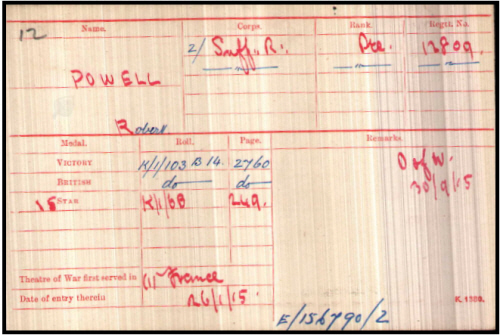 12
Name. Corps. Rank. Regtl. No.
2/ Suff. R. Pte. 12809.
POWELL
Robert.
Medal. Roll. Page. Remarks.
VICTORY K/1/103 B 14. 2760 D of W.
BRITISH do do 30/9/15
15 STAR K/1/6B 249.
Theatre of War first served in (1) France
Date of entry therein 26/1/15. K. 1380.
E/156790/2